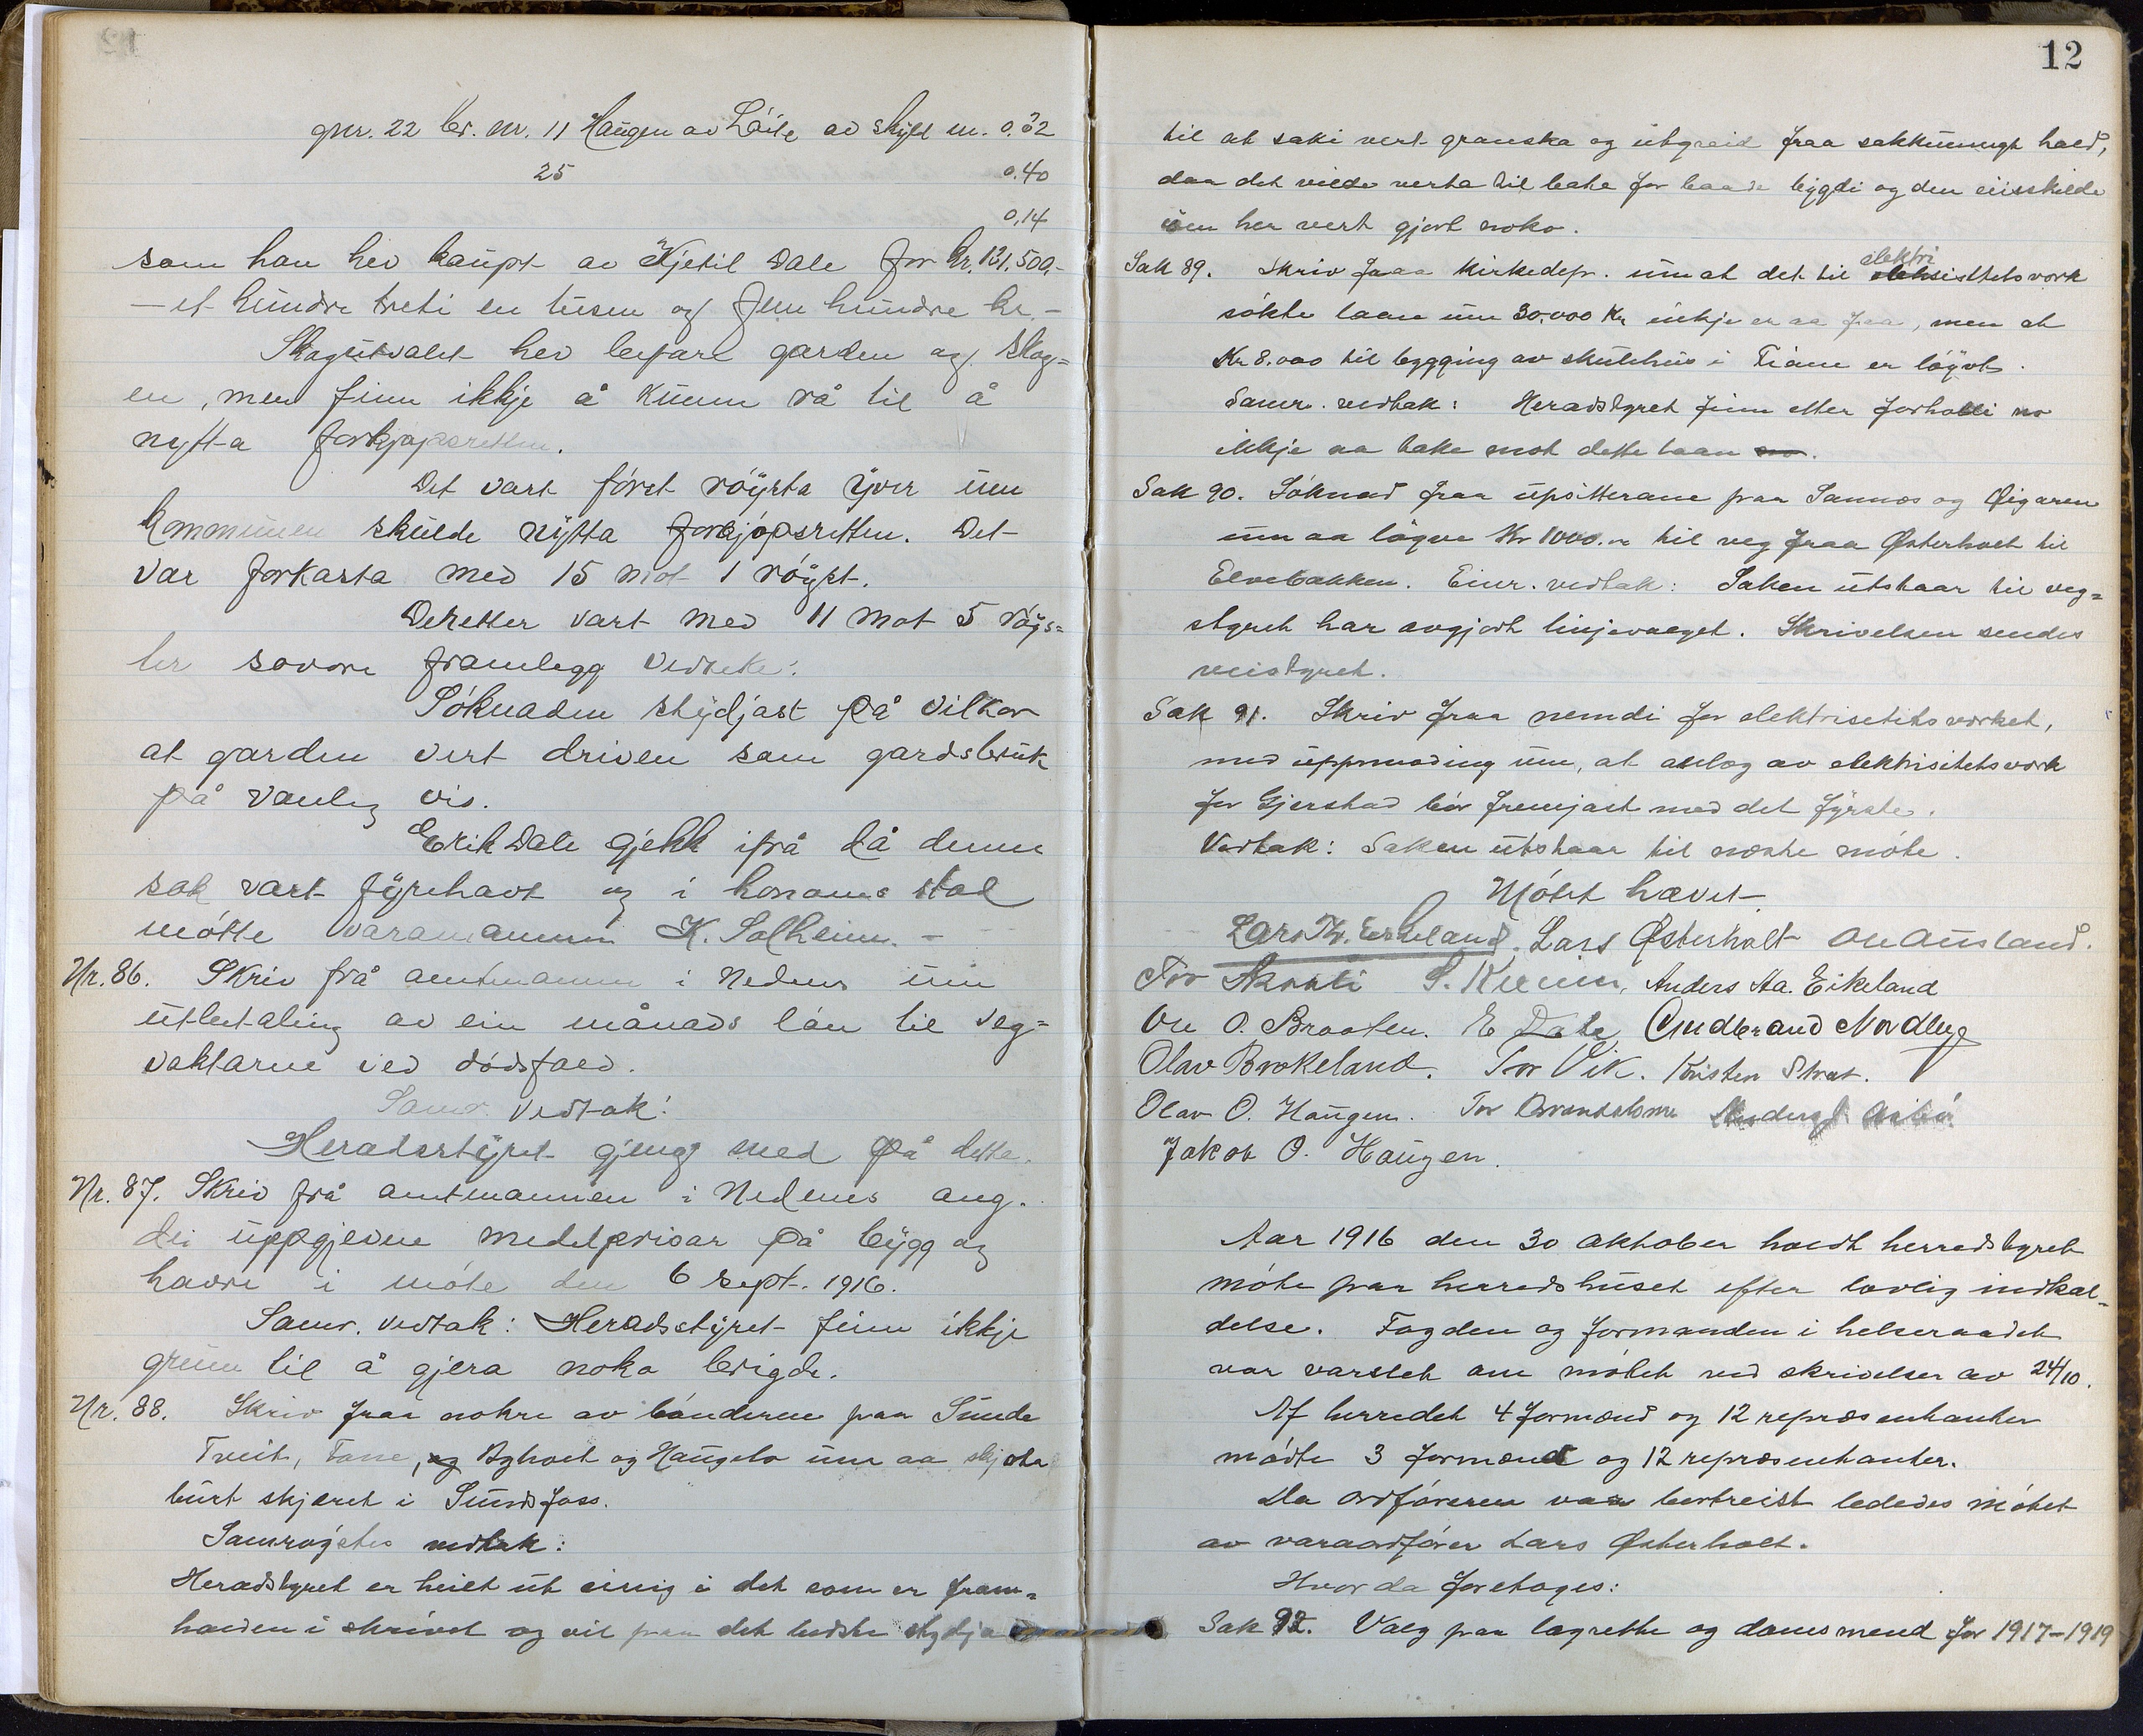 gnr. 22 br. nr. 11 Haugen av Löite av skyld m. 0.32
25 0.40
0,14
som han hev kaupt av Kjetil Dale for kr. 131.500,-
– et hundre treti en tusen og fem hundre kr. –
Skogutvalet hev befare garden og skog=
en, men finn ikkje å kunn rå til å
nytta forkjøpsretten.
Det vart först röysta yver um
kommunen skulde nytta forkjöpsretten. Det
var forkasta med 15 mot 1 röyst.
Deretter vart med 11 mot 5 röys=
ter sovore framlegg vedteke:
Söknaden stydjast på vilkor
at garden vert driven som gardsbruk
på vanleg vis.
Erik Dale gjekk ifrå då denne
sak vart fyrehavt og i honoms stad
mötte varamannen K. Solheim. –
Nr. 86. Skriv frå amtmannen i Nedenes um
utbetaling av ein månads lön til veg=
vaktarne ved dödsfald.
Samr. vedtak:
Heradsstyret gjeng med på dette.
Nr. 87. Skriv frå amtmannen i Nedenes ang.
dei uppgjevne medelprisar på bygg og
havre i möte den 6 sept. 1916.
Samr. vedtak: Heradsstyret finn ikkje
grunn til å gjera noko brigde.
Nr. 88. Skriv fraa nokre av bönderne paa Sunde
Tveit, og Ögholt og Haugelo um aa skjota
burt skjæret i Sundsfoss.
Samröystes vedtak:
Heradstyret er heilt ut einig i det som er fram=
halden i skrivet og vil paa det bedste stydja
12
til at saki vert granska og utgreid fraa sakkunnugt hald,
daa det vilde verta til bate for baade bygdi og den einskilde
um her vert gjort noko.
Sak 89. Skriv fraa Kirkedep. um at det til elektrisitetsverk
sökte laan um 30.000 Kr inkje er aa faa, men at
Kr 8.000 til bygging av skulehus i Tiane er löyvt.
Samr. vedtak: Heradstyret finn etter forholdi no
ikkje aa take mot dette laan.
Sak 90. Söknad fraa upsitterane paa Sannes og Øigaren
um aa löyve Kr 1000.00 til veg fraa Østerholt til
Elvebakken. Einr. vedtak: Saken utstaar til veg=
styret har avgjort linjevalget. Skrivelsen sendes
veistyret.
Sak 91. Skriv fraa nemdi for elektrisitetsverket,
med uppmoding um, at anlæg av elektrisitetsverk
for Gjerstad bör fremjast med det fyrste.
Vedtak: Saken utstaar til næste möte.
Mötet hævet
Lars Th. Eskeland. Lars Østerholt Ole Ausland.
Tor Skorili S. Kveim, Anders Aa. Eikeland
Ole O. Braaten. E Dale Gudbrand Nordbye
Olav Brokeland. Tor Vik. Kristen Strat.
Olav O. Haugen. Tor
Jakob O. Haugen.
Aar 1916 den 30 oktober holdt herredstyret
möte paa herredshuset efter lovlig indkal=
delse. Fogden og formanden i helseraadet
var varslet om mötet ved skrivelser av 24/10.
Af herredet 4 formænd og 12 repræsentanter
mödte 3 formænd og 12 repræsentanter.
Da ordföreren var bortreist lededes mötet
av varaordförer Lars Østerholt.
Hvor da foretoges:
Sak 92. Valg paa lagrette og domsmend for 1917–1919